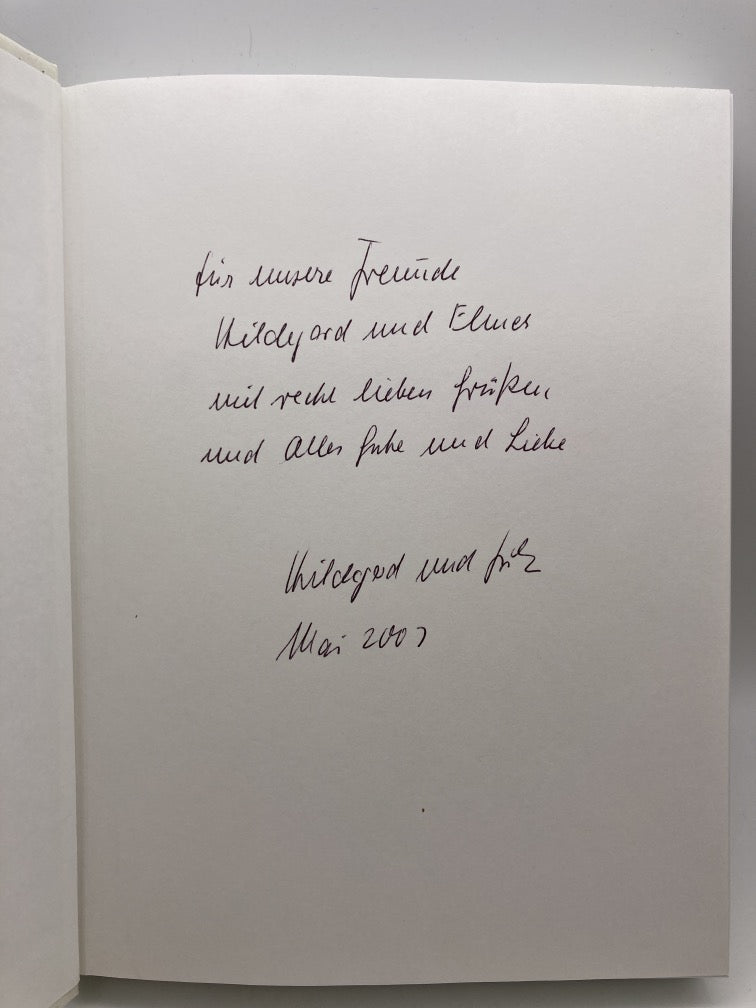 für unsere Freunde
Hildegard und Elmer
mit recht lieben Grüßen
und Alles Gute und Liebe
Hildegard und Fritz
Mai 2007